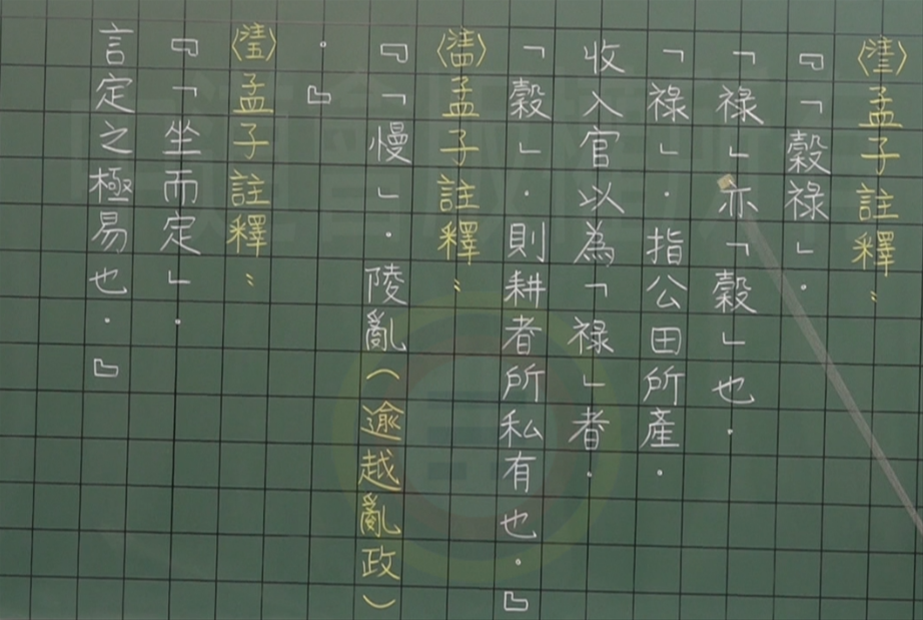 〈註三〉孟子註釋：
『「穀祿」．
「祿」亦「穀」也．
「祿」．指公田所產．
收入官以為「祿」者．
「穀」．則耕者所私有也．』
〈註四〉孟子註釋：
『「慢」．陵亂（逾越亂政）
．』
〈註五〉孟子註釋：
『「坐而定」．
言定之極易也．』